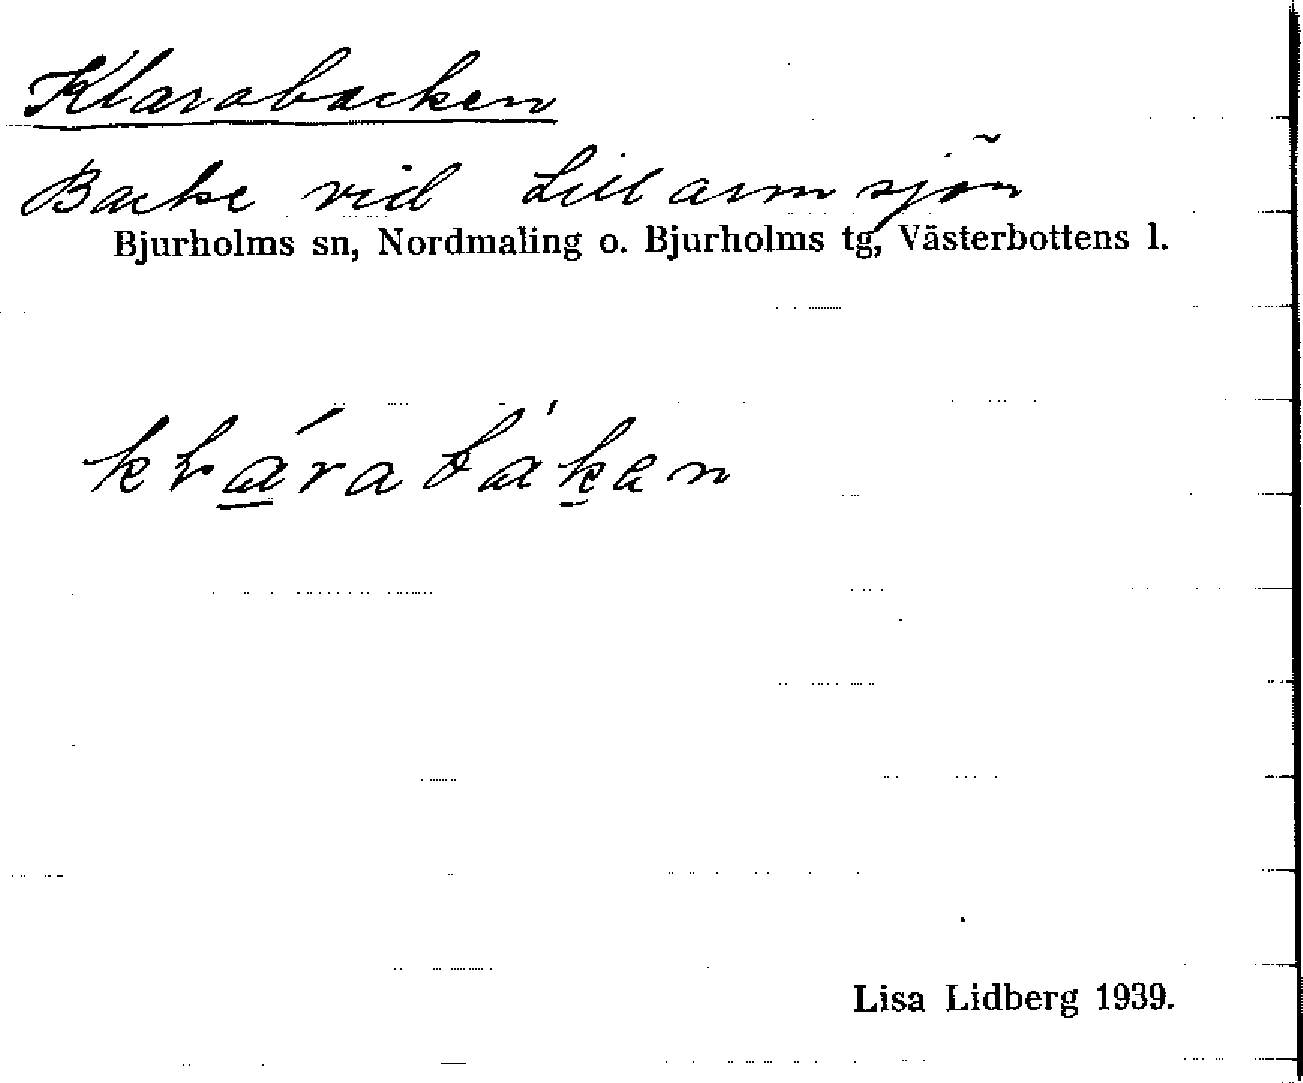 Klarabacken
Backe vid Lillarmsjön
Bjurholms sn, Nordmaling o. Bjurholms tg, Västerbottens l.
Lisa Lidberg 1939.